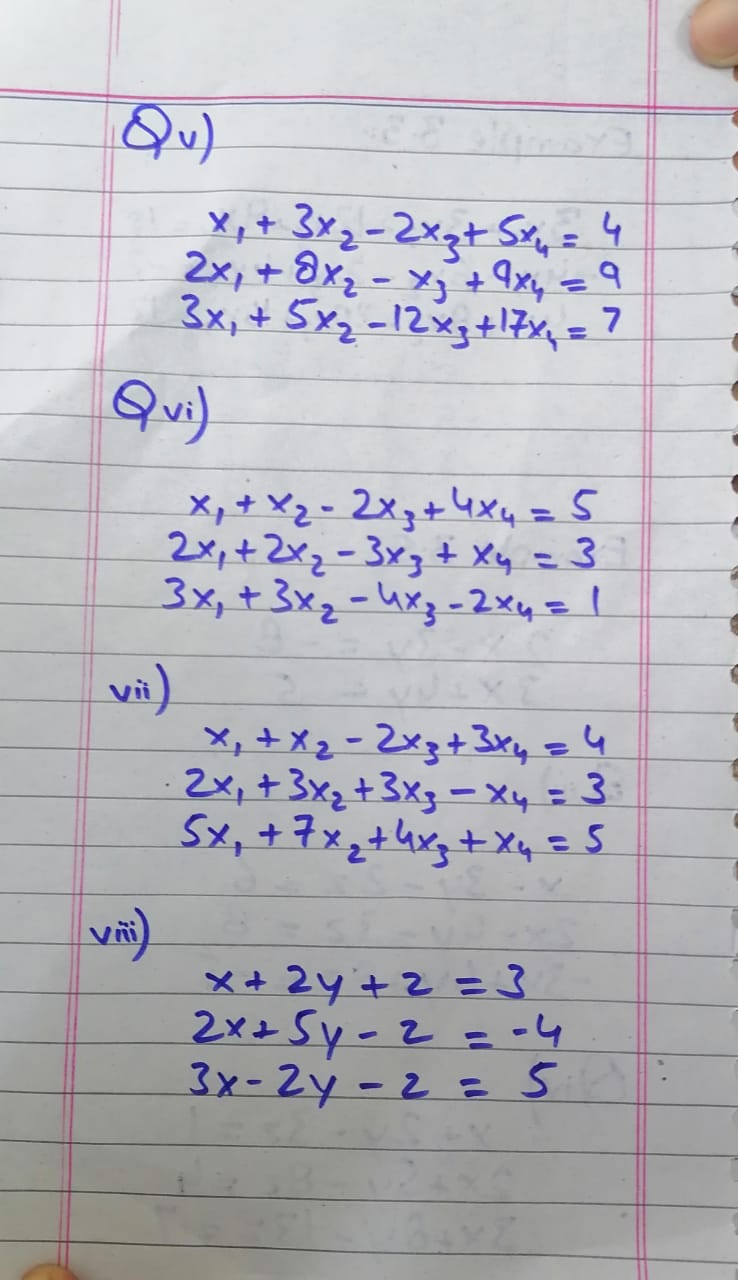 Qv)
x₁ + 3x₂ - 2x₃ + 5x₄ = 4
2x₁ + 8x₂ - x₃ + 9x₄ = 9
3x₁ + 5x₂ - 12x₃ + 17x₄ = 7
Qvi)
x₁ + x₂ - 2x₃ + 4x₄ = 5
2x₁ + 2x₂ - 3x₃ + x₄ = 3
3x₁ + 3x₂ - 4x₃ - 2x₄ = 1
vii)
x₁ + x₂ - 2x₃ + 3x₄ = 4
2x₁ + 3x₂ + 3x₃ - x₄ = 3
5x₁ + 7x₂ + 4x₃ + x₄ = 5
viii)
x + 2y + z = 3
2x + 5y - z = -4
3x - 2y - z = 5